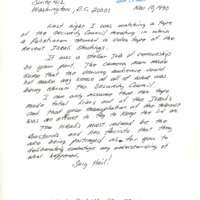 Suite 412
Washington, D.C. 20001
Nov. 10, 1990
Last night I was watching a tape
of the Security Council meeting in which
a Palestinian showed a video tape of the
recent Israel shootings.
It was a stellar job of censorship
on your part. The camera man made
sure that the viewing audience could
not make any sense at all of what was
being shown the Security Council.
I can only assume that the tape
made total liars out of the Israelis
and that your manipulation of the telecast
was an attempt to try to keep the lid on.
The Israelis must indeed be the
bastards and neo fascists that they
are being portrayed as for you to
deliberately sabotage any understanding of
what happened.
Sieg Heil!